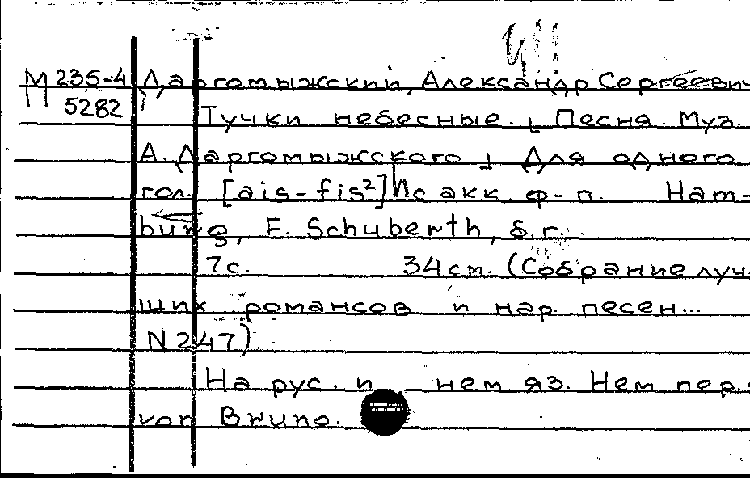 М 235-4 Даргомыжский, Александр Сергеевич
5282 Тучки небесные. Песня. Муз.
А. Даргомыжского. Для одного
гол. [ais-fis²] с акк. ф-п. Ham-
burg, E. Schuberth, б.г.
7с. 34 см. (Собрание луч-
ших романсов и нар. песен...
N 247)
На рус. и нем яз. Нем пер.
von Bruno.